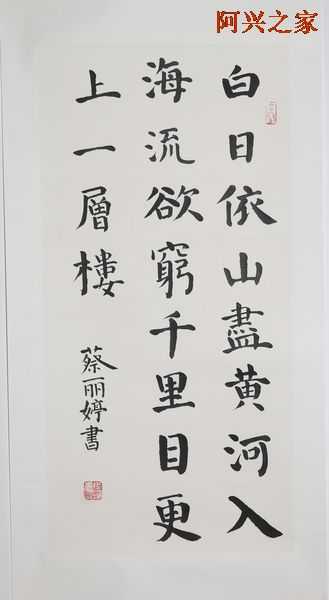 阿兴之家
白日依山盡黄河入
海流欲窮千里目更
上一層樓
蔡丽婷書